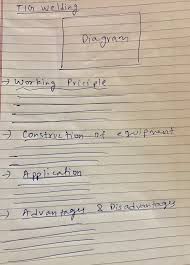 TIG Welding
Diagram
→ Working Priciple
→ Construction of equipment
→ Application
→ Advantages & Disadvantages